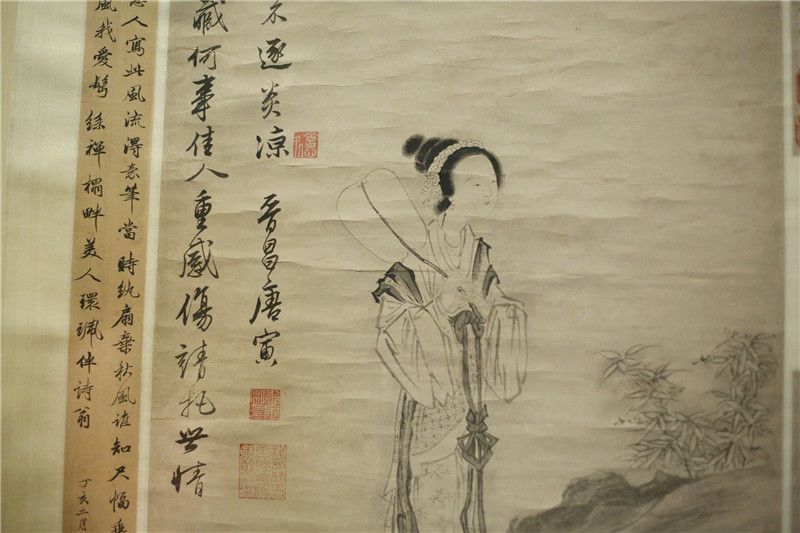 人寫此風流得意筆當時紈扇棄秋風誰知尺幅
風我愛髩絲禪榻畔美人環珮伴詩翁
丁亥二月
藏何事佳人重感傷請托世情
不逐炎涼 晉昌唐寅